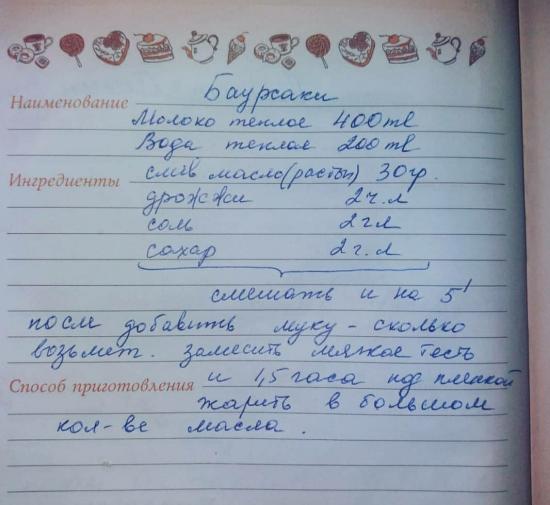 Наименование Баурсаки
Молоко теплое 400ml
Вода теплая 200ml
Ингредиенты слив масло(растоп) 30гр.
дрожжи 2ч.л
соль 2чл
сахар 2ч.л
смешать и на 5'
после добавить муку - сколько
возьмет. замесить мягкое тесто
Способ приготовления и 1,5 часа под пленкой
жарить в большом
кол-ве масла.